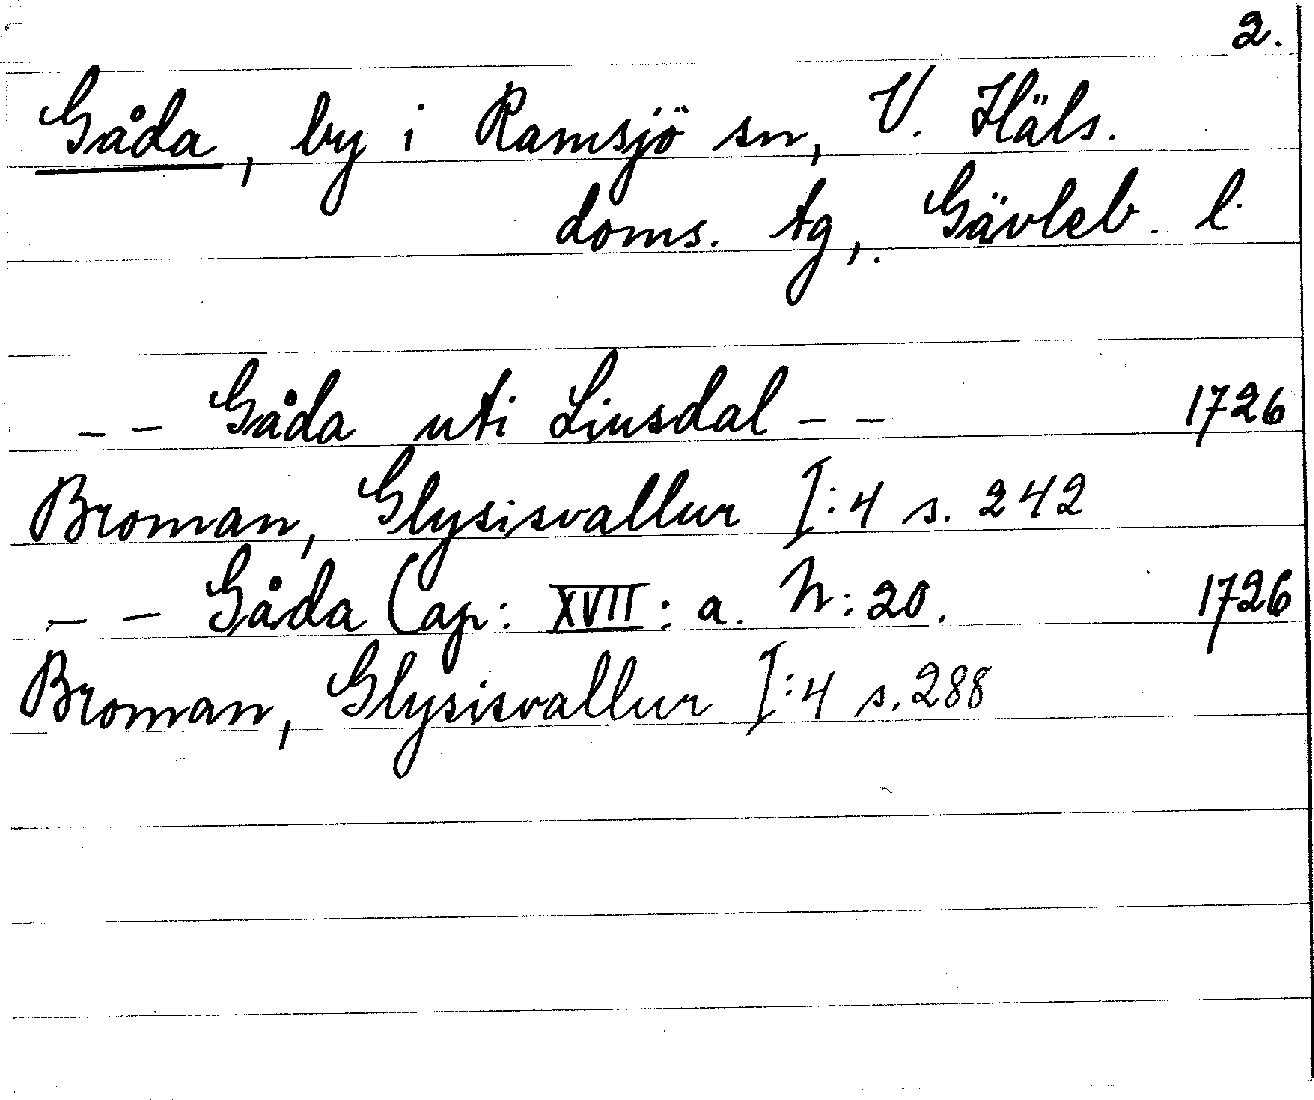 2.
Gåda, by i Ramsjö sn, V. Häls.
doms. tg, Gävleb. l.
-- Gåda uti Liusdal -- 1726
Broman, Glysisvallur I:4 s. 242
-- Gåda Cap: XVII: a. N:20. 1726
Broman, Glysisvallur I:4 s. 288